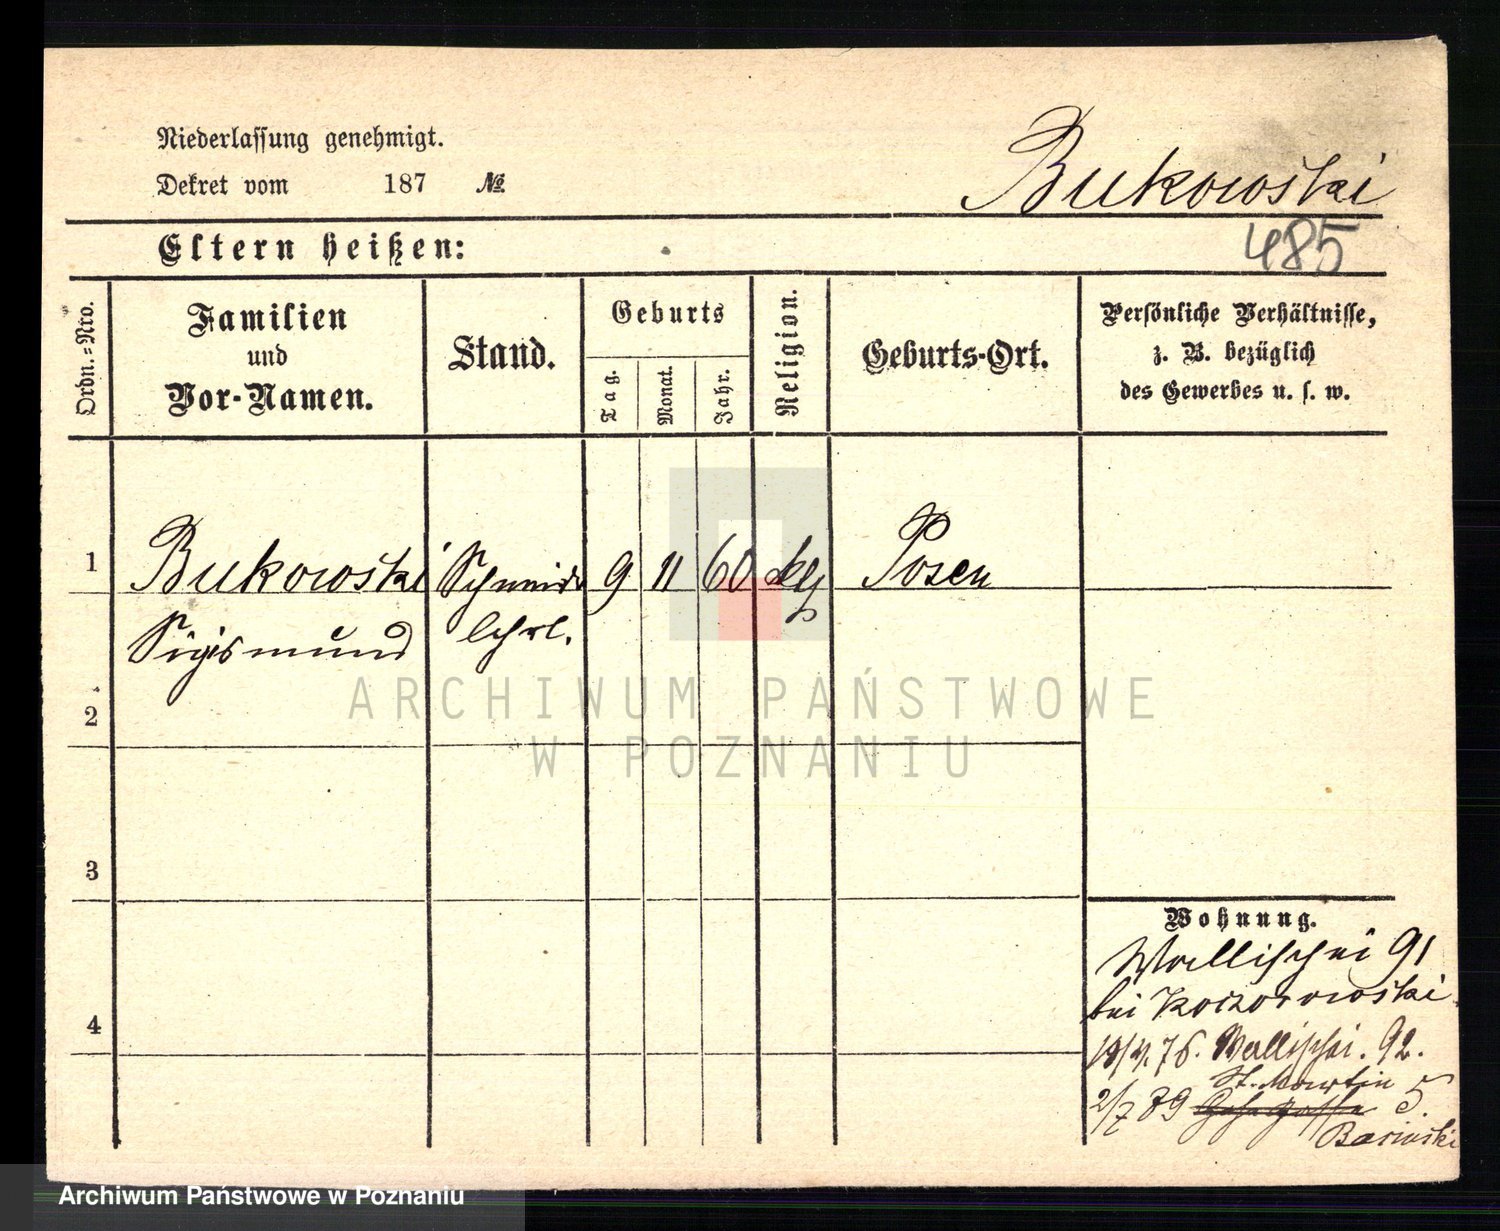 Niederlassung genehmigt.
Dekret vom 187 №
Bukowski
485
Eltern heißen:
Ordn.=Nro.
Familien
und
Vor-Namen.
Stand.
Geburts
Tag.
Monat.
Jahr.
Religion.
Geburts-Ort.
Persönliche Verhältnisse,
z. B. bezüglich
des Gewerbes u. s. w.
1 Bukowski Schneider 9 11 60 Posen
Sigismund lehrl.
2
3
4
Wohnung.
Wallischei 91
bei
76. Wallischei. 92.
St. Martin
2/7 79 5.
ARCHIWUM PAŃSTWOWE
W POZNANIU
Archiwum Państwowe w Poznaniu